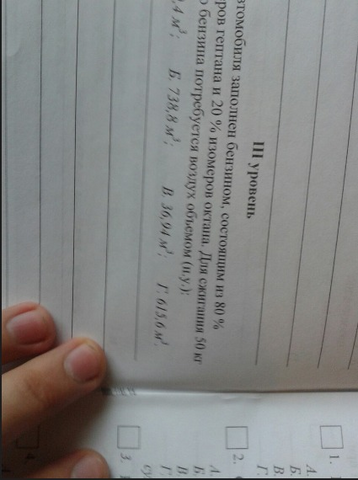 III уровень
втомобиля заполнен бензином, состоящим из 80 %
ров гептана и 20 % изомеров октана. Для сжигания 50 кг
о бензина потребуется воздух объемом (н.у.):
,4 м³; Б. 738,8 м³; В. 36,94 м³; Г. 615,6 м³.
1.
А.
Б.
В.
Г.
2.
А.
Б.
В.
Г.
3.
су
4.